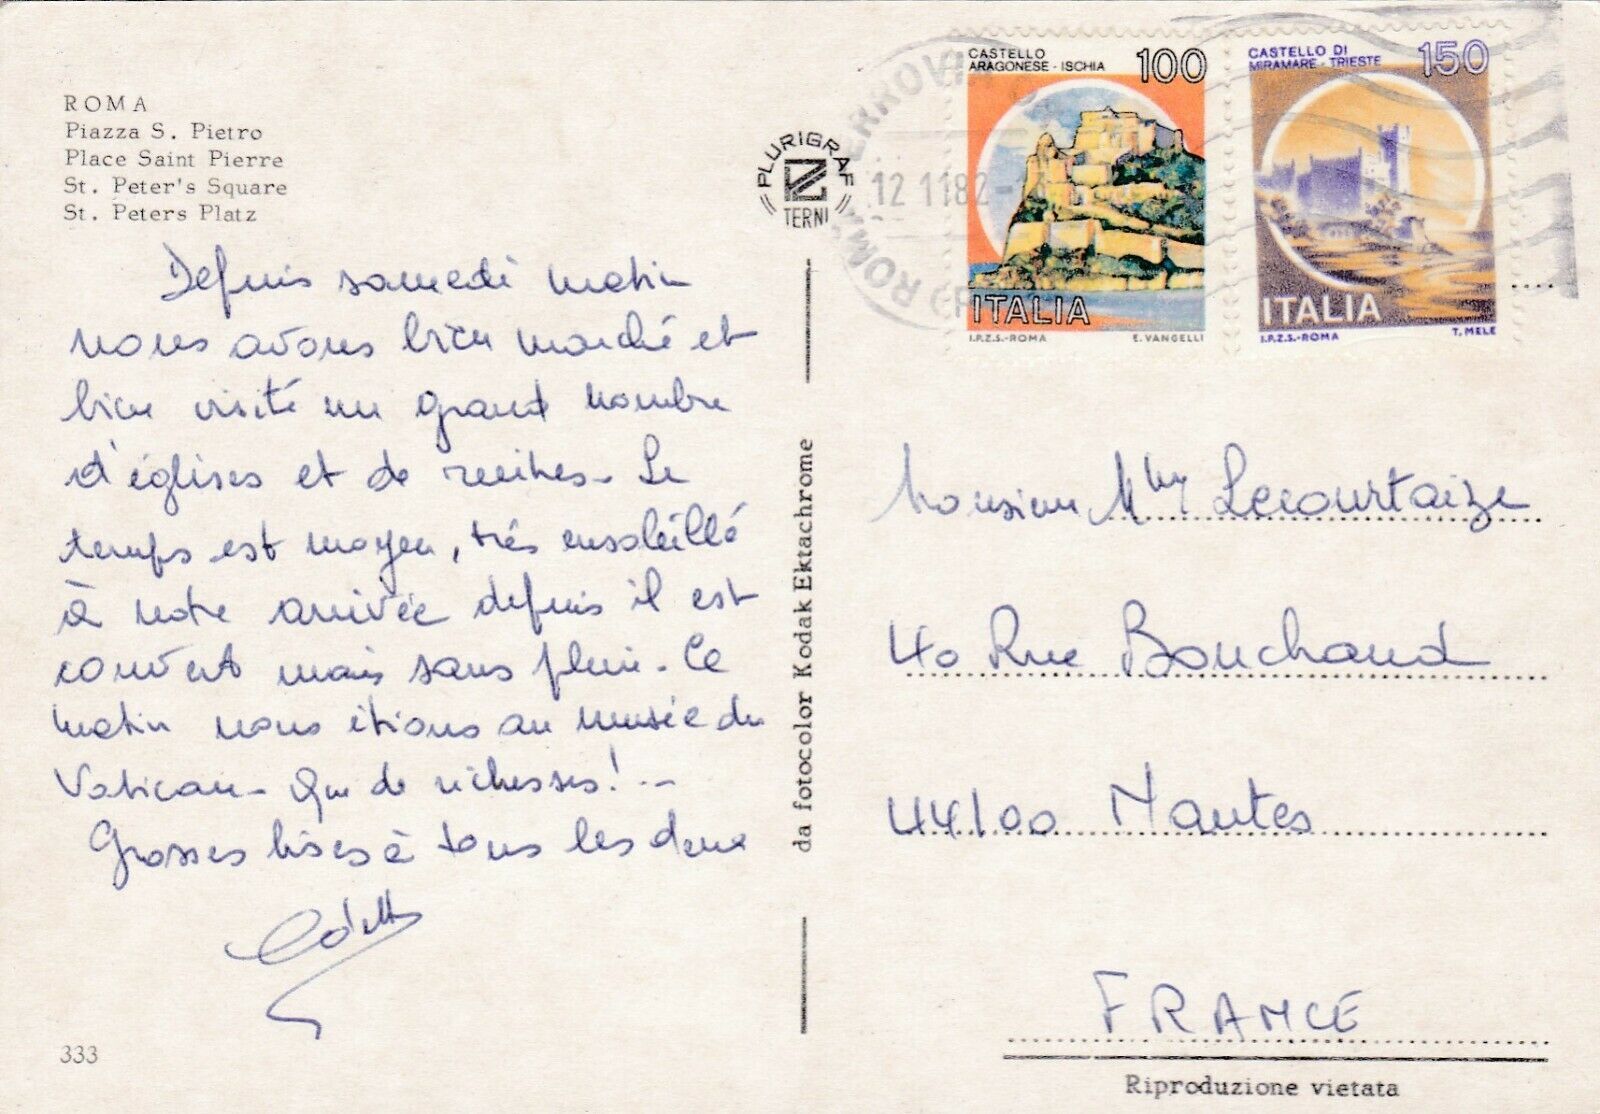 ROMA
Piazza S. Pietro
Place Saint Pierre
St. Peter's Square
St. Peters Platz
Depuis samedi matin
nous avons bien marché et
bien visité un grand nombre
d'églises et de ruines - Le
temps est moyen, très ensoleillé
à notre arrivée depuis il est
couvert mais sans pluie - Ce
matin nous étions au musée du
Vatican - Que de richesses! --
Grosses bises à tous les deux
Odette
333
PLURIGRAF
TERNI
da fotocolor Kodak Ektachrome
ROMA FERROVIA
12 11 82
CASTELLO
ARAGONESE - ISCHIA 100
ITALIA
I.P.Z.S.-ROMA E. VANGELLI
CASTELLO DI
MIRAMARE - TRIESTE 150
ITALIA
I.P.Z.S.-ROMA T. MELE
Monsieur Mme Lecourtaize
40 Rue Bouchaud
44100 Nantes
FRANCE
Riproduzione vietata